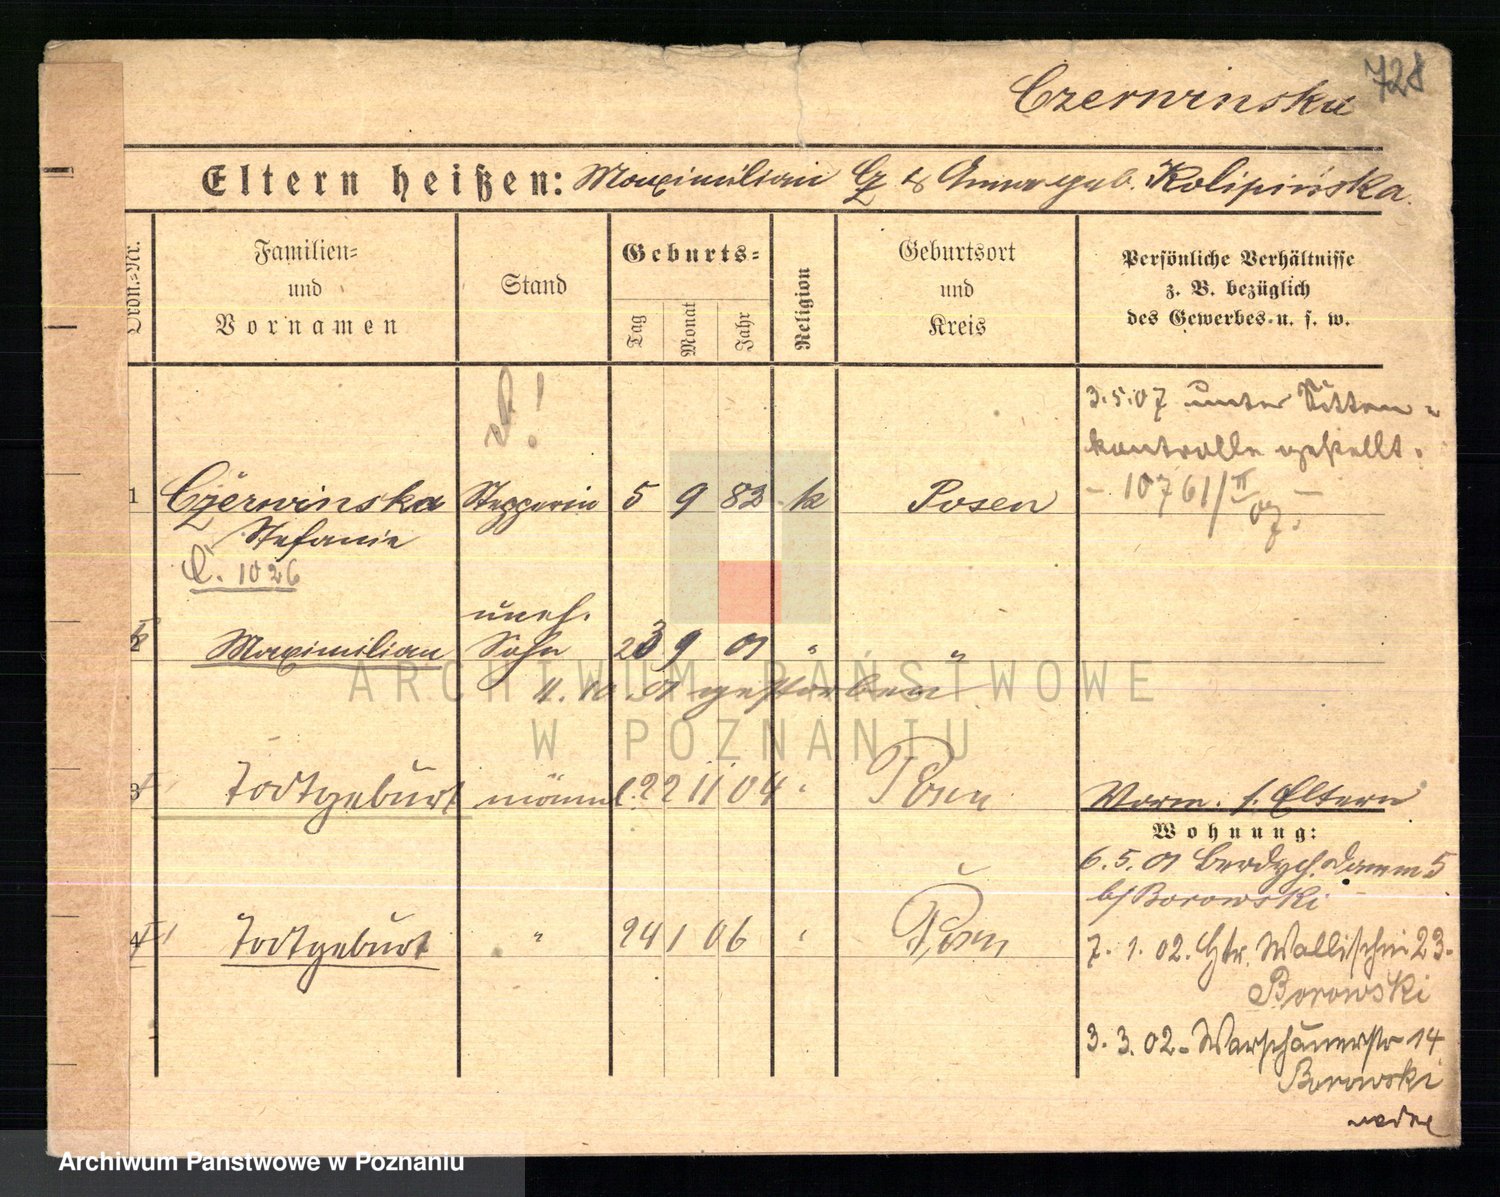 728
Czerwinska
Eltern heißen: Maximilian Cz & Anna geb. Kolipińska.
Ordn.=Nr.
Familien=
und
Vornamen
Stand
Geburts=
Tag
Monat
Jahr
Religion
Geburtsort
und
Kreis
Persönliche Verhältnisse
z. B. bezüglich
des Gewerbes u. s. w.
3.5.07 unter Sitten=
kontrolle gestellt.
- 10761/II 07. -
1 Czerwinska Stepperin 5 9 83 k Posen
Stefanie
C. 1026
uneh.
2 Maximilian Sohn 23 9 01 " "
11.10.01 gestorben
3 Todtgeburt männl. 22 11 04 " Posen
Worm. s. Eltern
Wohnung:
6.5.01 Berdych. Damm 5
b/ Borowski
4 Todtgeburt " 24 1 06 " Posen
7. 1. 02. Htr. Wallischei 23.
Borowski
3. 3. 02. Warschauerstr 14
Borowski
ARCHIWUM PAŃSTWOWE
W POZNANIU
Archiwum Państwowe w Poznaniu